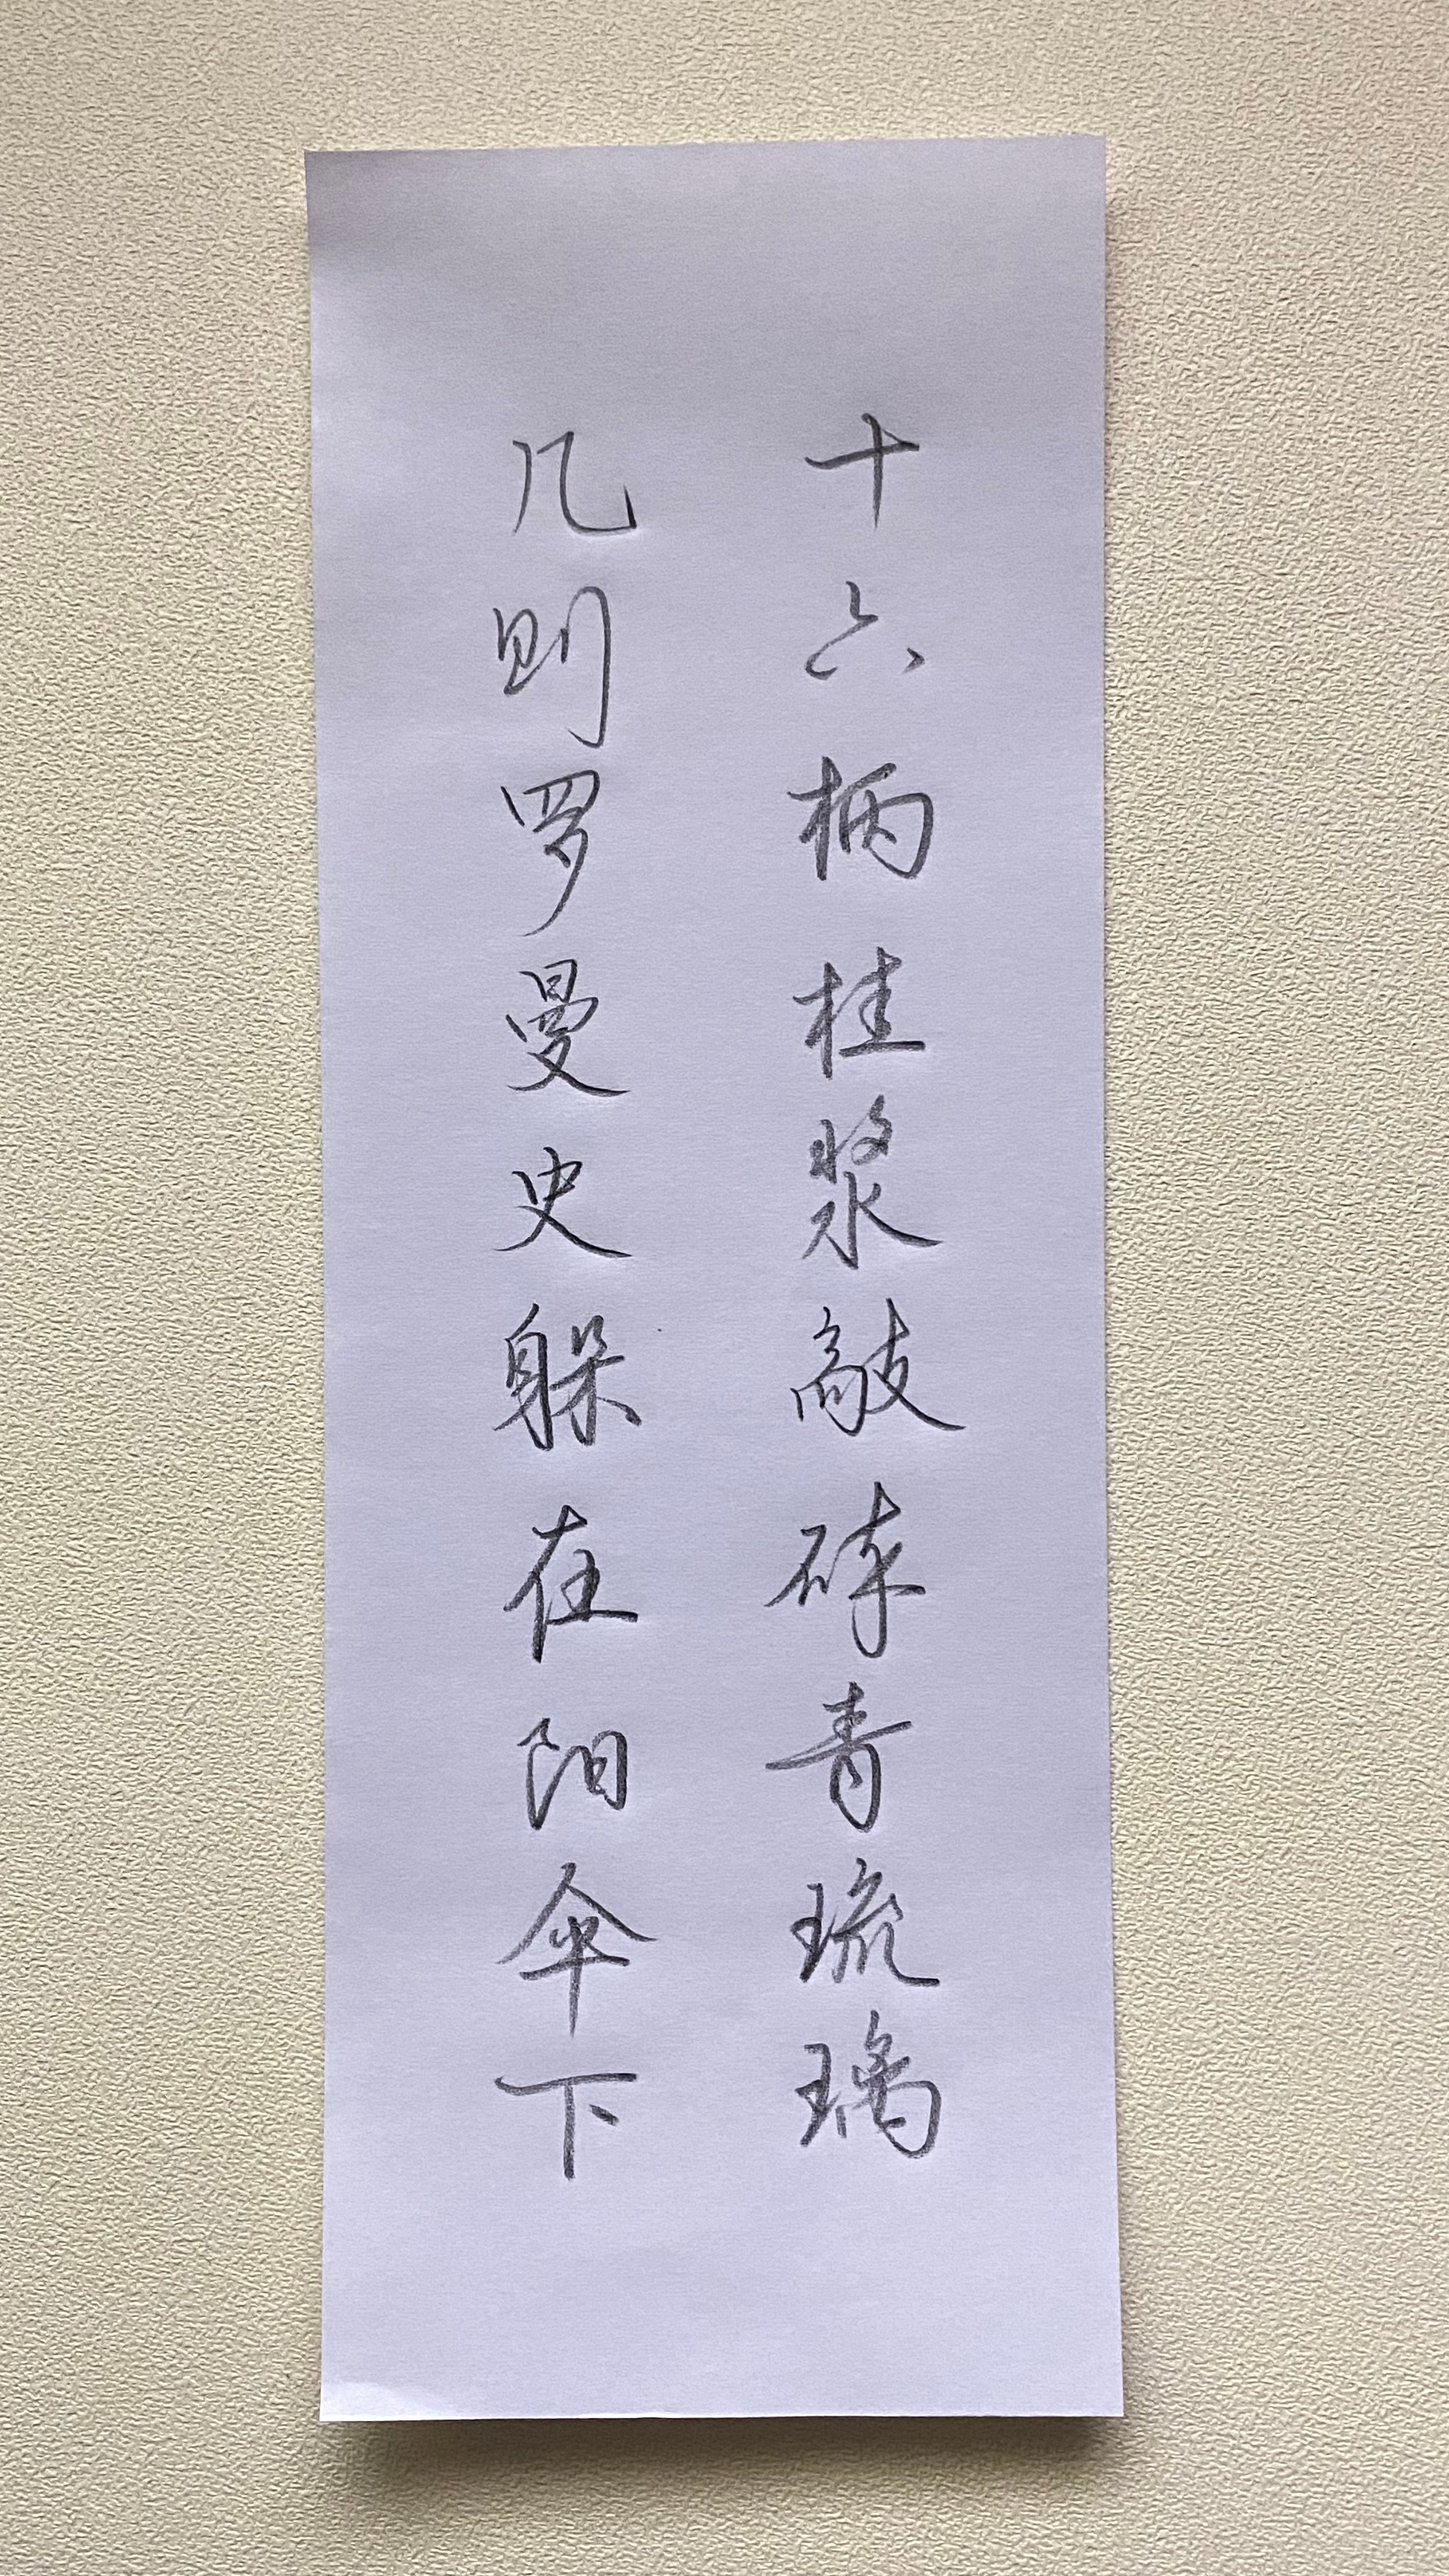 十六柄桂浆敲碎青琉璃
几则罗曼史躲在阳伞下